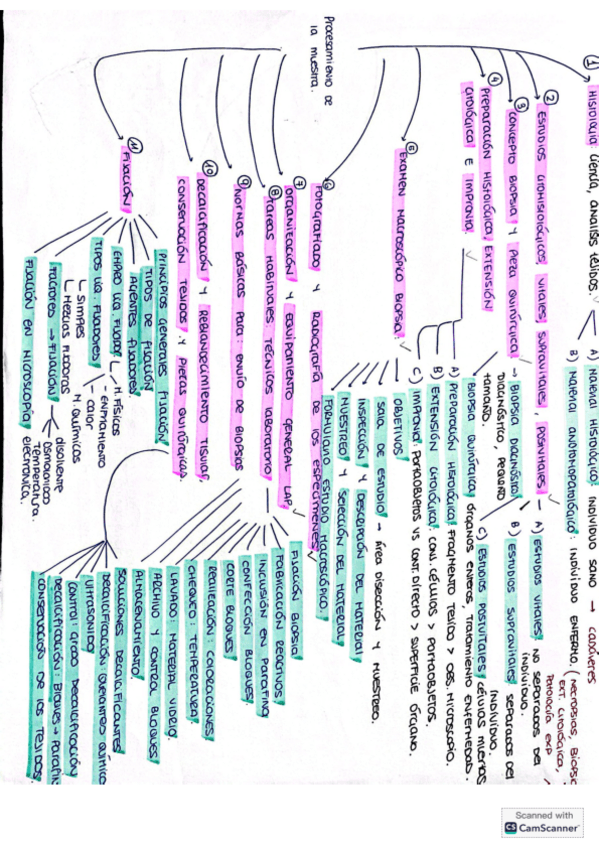 Procesamiento de
la muestra.
① Histología Ciencia, analisis tejidos.
A) Material Histológico: individuo sano → cadáveres
B) Material anatomopatológico: individuo enfermo. (necropsias, Biopsi
ext. citológica,
Patología exp
② Estudios citohistológicos vitales, supravitales, posvitales
A) Estudios vitales: no separados del
individuo.
B) Estudios supravitales: separados del
individuo.
C) Estudios postvitales: células muertas
③ Concepto Biopsia y Pieza quirúrgica
→ Biopsia diagnóstica:
Diagnóstico, pequeño
tamaño.
Biopsia quirúrgica: órganos enteros, tratamiento enfermedad.
④ Preparación Histológica, Extensión
citológica e impronta.
A) Preparación Histológica: Fragmento tejido > obs. microscopio.
B) Extensión citológica: Cont. células > portaobjetos.
C) Impronta: portaobjetos vs cont. directo > superficie órgano.
⑤ Examen macroscópico Biopsia
Objetivos
Sala de estudio → área disección y muestreo.
Inspección y descripción del material
Muestreo y selección del material
Formulario estudio macroscópico.
⑥ Fotografiado y Radiografía de los especímenes
⑦ Organización y equipamiento general LAP
⑧ Tareas habituales técnicos laboratorio
Fijación Biopsia
Fabricación reactivos
Inclusión en parafina
Confección bloques
Corte bloques
Realización: coloraciones
Chequeo: temperatura
Lavado: material vidrio.
Archivo y control bloques
Almacenamiento
⑨ Normas básicas para: envío de biopsias
⑩ Decalcificación y Reblandecimiento tisular,
conservación tejidos y piezas quirúrgicas
Soluciones decalcificantes
Decalcificación (quelantes químico
ultrasonido
Control: grado decalcificación
Decalcificación: Bloques → parafin
Conservación de los tejidos
⑪ Fijación
Principios generales fijación
Tipos de fijación
Agentes fijadores
Empleo liq. fijador
M. Físicos
- enfriamiento
- calor
M. Químicos
Tipos liq. fijadores
Simples
Mezclas fijadoras
Factores → fijación
disolvente
osmoridad
temperatura
Fijación en microscopía electrónica.
Scanned with
CS CamScanner